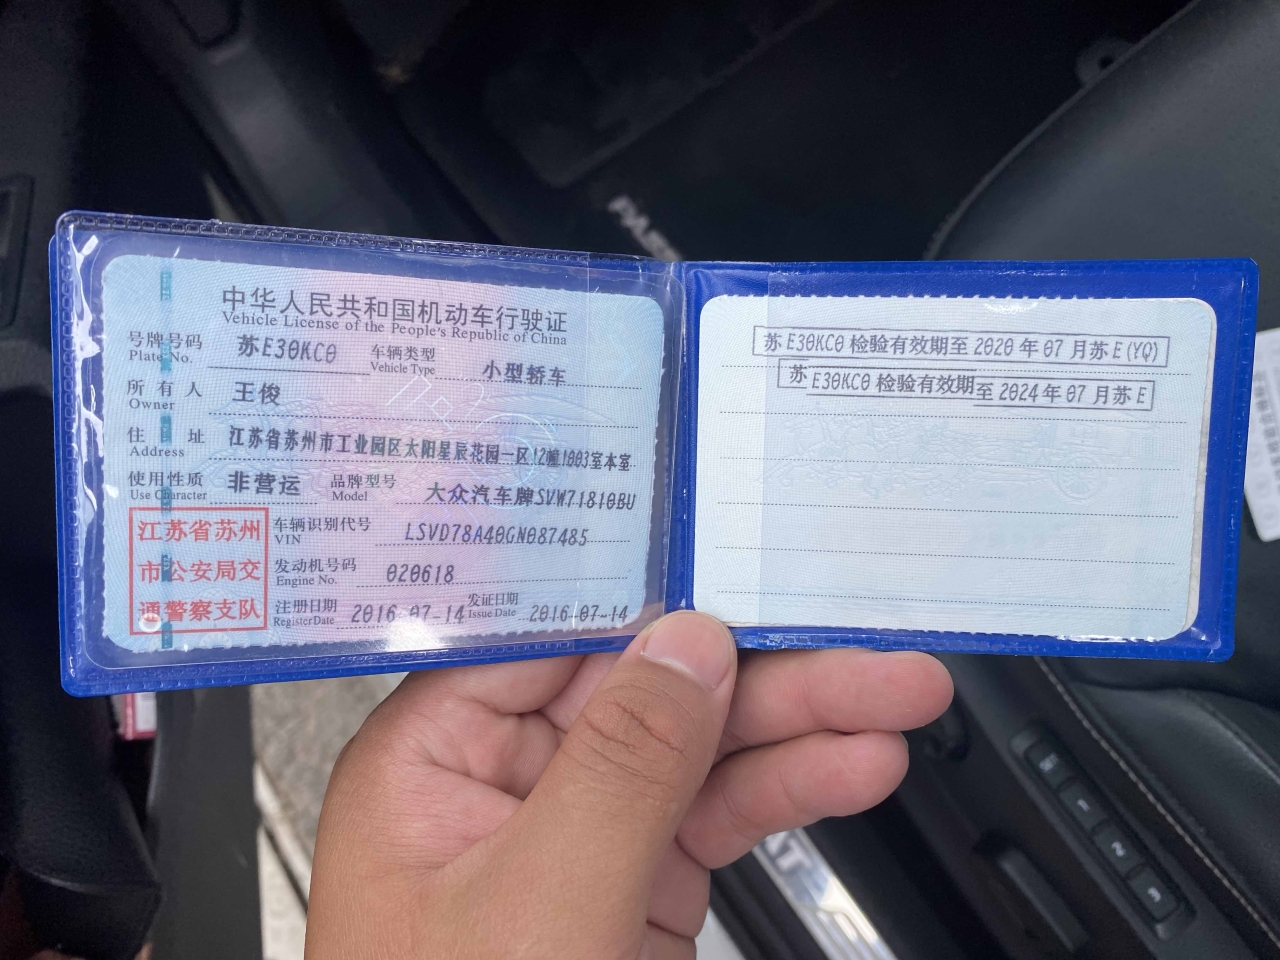 中华人民共和国机动车行驶证
Vehicle License of the People's Republic of China
号牌号码 苏E30KC0 车辆类型 小型轿车
Plate No. Vehicle Type
所有人 王俊
Owner
住址 江苏省苏州市工业园区太阳星辰花园一区12幢1003室本室
Address
使用性质 非营运 品牌型号 大众汽车牌SVW71810BU
Use Character Model
江苏省苏州
市公安局交
通警察支队
车辆识别代号 LSVD78A40GN087485
VIN
发动机号码 020618
Engine No.
注册日期 2016-07-14 发证日期 2016-07-14
Register Date Issue Date
苏E30KC0检验有效期至2020年07月苏E(YQ)
苏E30KC0检验有效期至2024年07月苏E